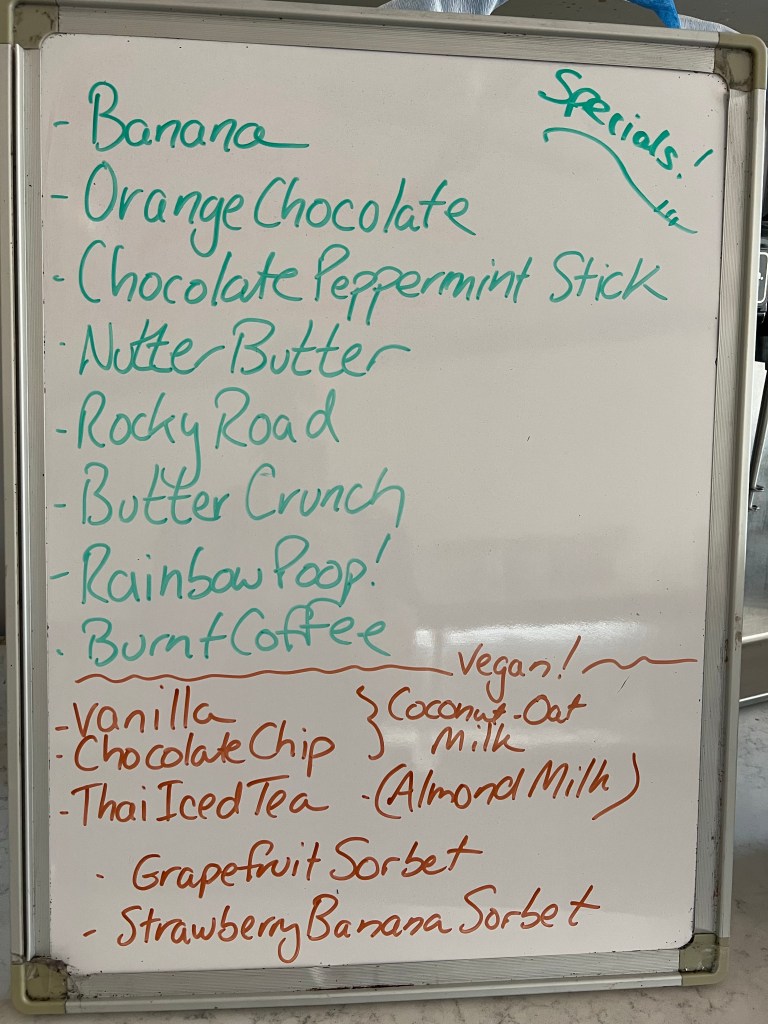 Specials!
- Banana
- Orange Chocolate
- Chocolate Peppermint Stick
- Nutter Butter
- Rocky Road
- Butter Crunch
- Rainbow Poop!
- Burnt Coffee
Vegan!
- Vanilla } Coconut-Oat
- Chocolate Chip } Milk
- Thai Iced Tea - (Almond Milk)
- Grapefruit Sorbet
- Strawberry Banana Sorbet